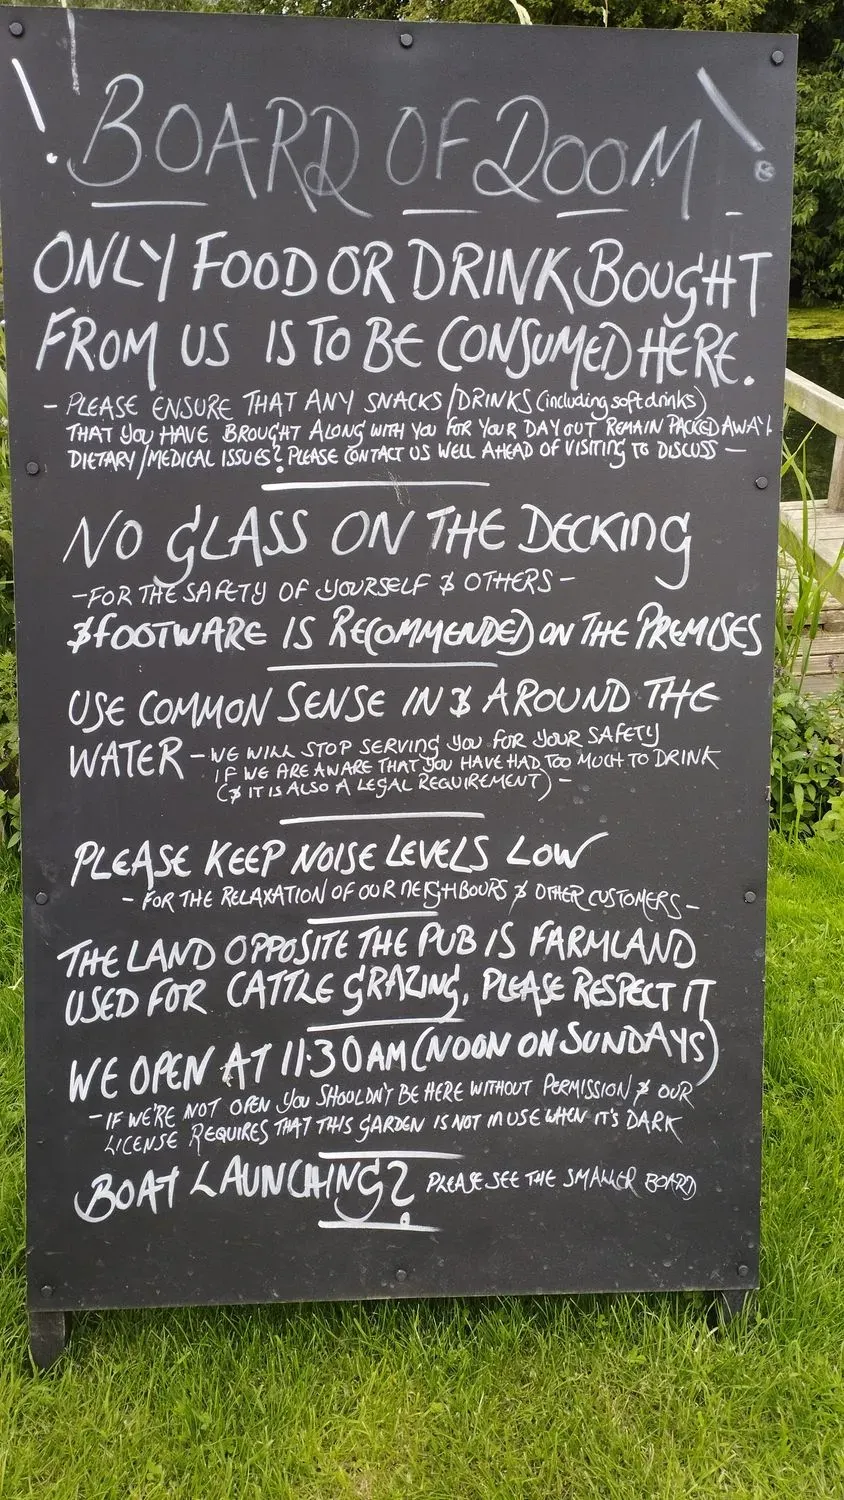 ! BOARD OF DOOM !
ONLY FOOD OR DRINK BOUGHT
FROM US IS TO BE CONSUMED HERE.
- PLEASE ENSURE THAT ANY SNACKS/DRINKS (including soft drinks)
THAT YOU HAVE BROUGHT ALONG WITH YOU FOR YOUR DAY OUT REMAIN PACKED AWAY.
DIETARY/MEDICAL ISSUES? PLEASE CONTACT US WELL AHEAD OF VISITING TO DISCUSS -
NO GLASS ON THE DECKING
- FOR THE SAFETY OF YOURSELF & OTHERS -
& FOOTWARE IS RECOMMENDED ON THE PREMISES
USE COMMON SENSE IN & AROUND THE
WATER - WE WILL STOP SERVING YOU FOR YOUR SAFETY
IF WE ARE AWARE THAT YOU HAVE HAD TOO MUCH TO DRINK
(& IT IS ALSO A LEGAL REQUIREMENT) -
PLEASE KEEP NOISE LEVELS LOW
- FOR THE RELAXATION OF OUR NEIGHBOURS & OTHER CUSTOMERS -
THE LAND OPPOSITE THE PUB IS FARMLAND
USED FOR CATTLE GRAZING, PLEASE RESPECT IT
WE OPEN AT 11:30AM (NOON ON SUNDAYS)
- IF WE'RE NOT OPEN YOU SHOULDN'T BE HERE WITHOUT PERMISSION & OUR
LICENSE REQUIRES THAT THIS GARDEN IS NOT IN USE WHEN IT'S DARK
BOAT LAUNCHING? PLEASE SEE THE SMALLER BOARD